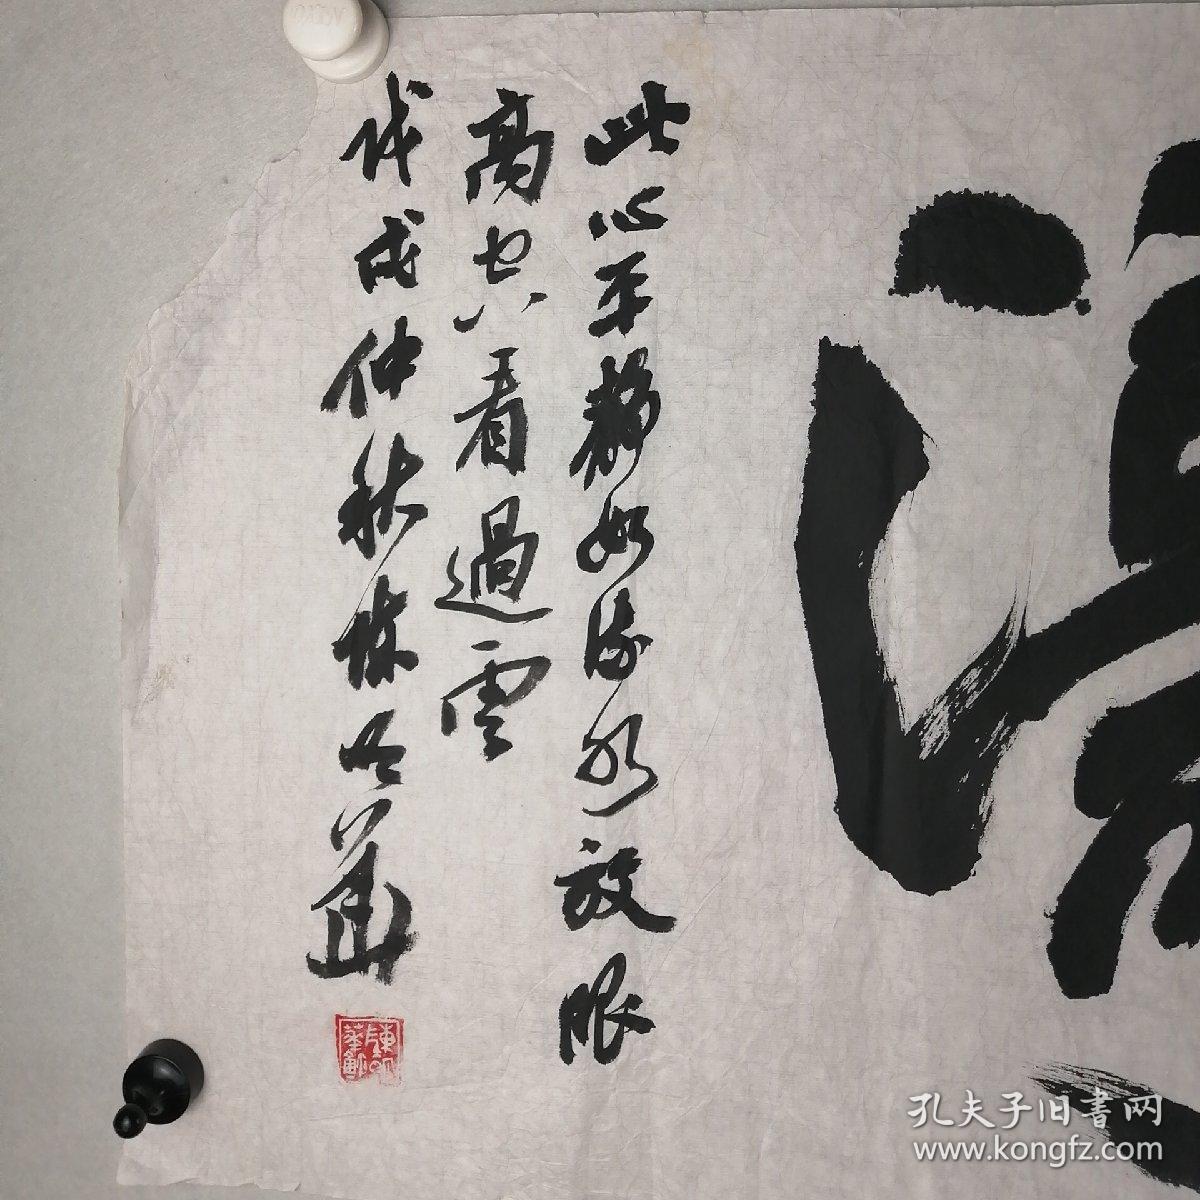 此心平静如流水放眼
高空看過雲
戊戌仲秋陈
孔夫子旧書网
www.kongfz.com